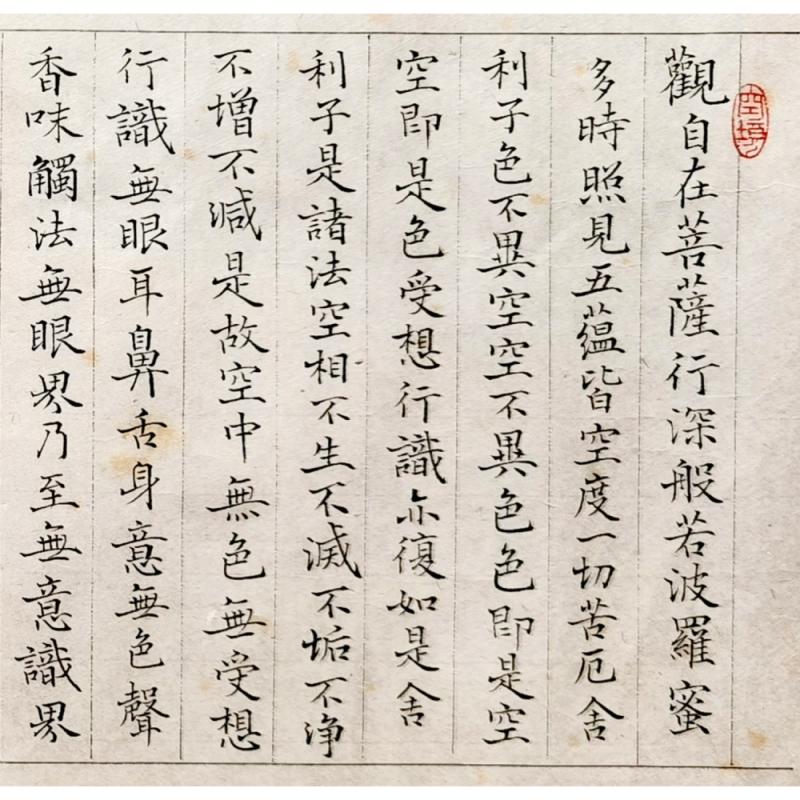 觀自在菩薩行深般若波羅蜜
多時照見五蘊皆空度一切苦厄舍
利子色不異空空不異色色即是空
空即是色受想行識亦復如是舍
利子是諸法空相不生不滅不垢不淨
不增不減是故空中無色無受想
行識無眼耳鼻舌身意無色聲
香味觸法無眼界乃至無意識界